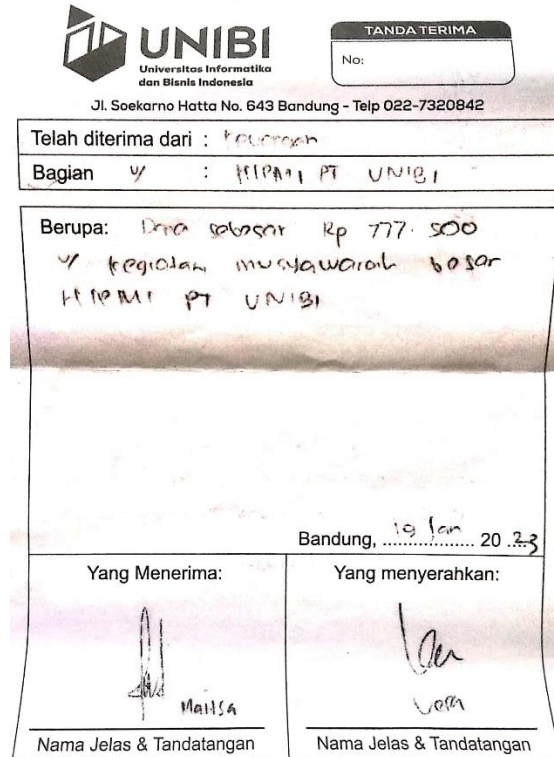 UNIBI
Universitas Informatika
dan Bisnis Indonesia
TANDA TERIMA
No:
Jl. Soekarno Hatta No. 643 Bandung - Telp 022-7320842
Telah diterima dari : Keuangan
Bagian u/ : HIPMI PT UNIBI
Berupa: Dana sebesar Rp 777.500
u/ kegiatan musyawarah besar
HIPMI PT UNIBI
Bandung, 19 Jan 20.23
Yang Menerima:
Yang menyerahkan:
Maitsa
Vera
Nama Jelas & Tandatangan
Nama Jelas & Tandatangan